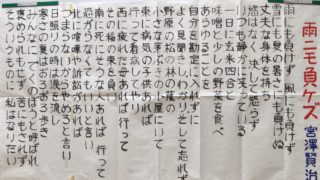 雨ニモ負ケズ 宮澤賢治
雨にも負けず 風にも負けず
雪にも夏の暑さにも負けぬ
丈夫な身体を持ち
慾はなく 決して怒らず
いつも静かに笑っている
一日に玄米四合と
味噌と少しの野菜を食べ
あらゆることを
自分を勘定に入れずに
よく見聞きしわかりそして忘れず
野原の松の林の蔭の
小さな茅ぶきの小屋にいて
東に病気の子供あれば
行って看病してやり
西に疲れた母あれば行って
その稲の束を負い
南に死にそうな人あれば 行って
恐がらなくてもいいと言い
北に喧嘩や訴訟があれば
つまらないからやめろと言い
日照りの時は涙を流し
寒さの夏はおろおろ歩き
みんなにでくのぼうと呼ばれ
褒められもせず 苦にもされず
そういうものに 私はなりたい